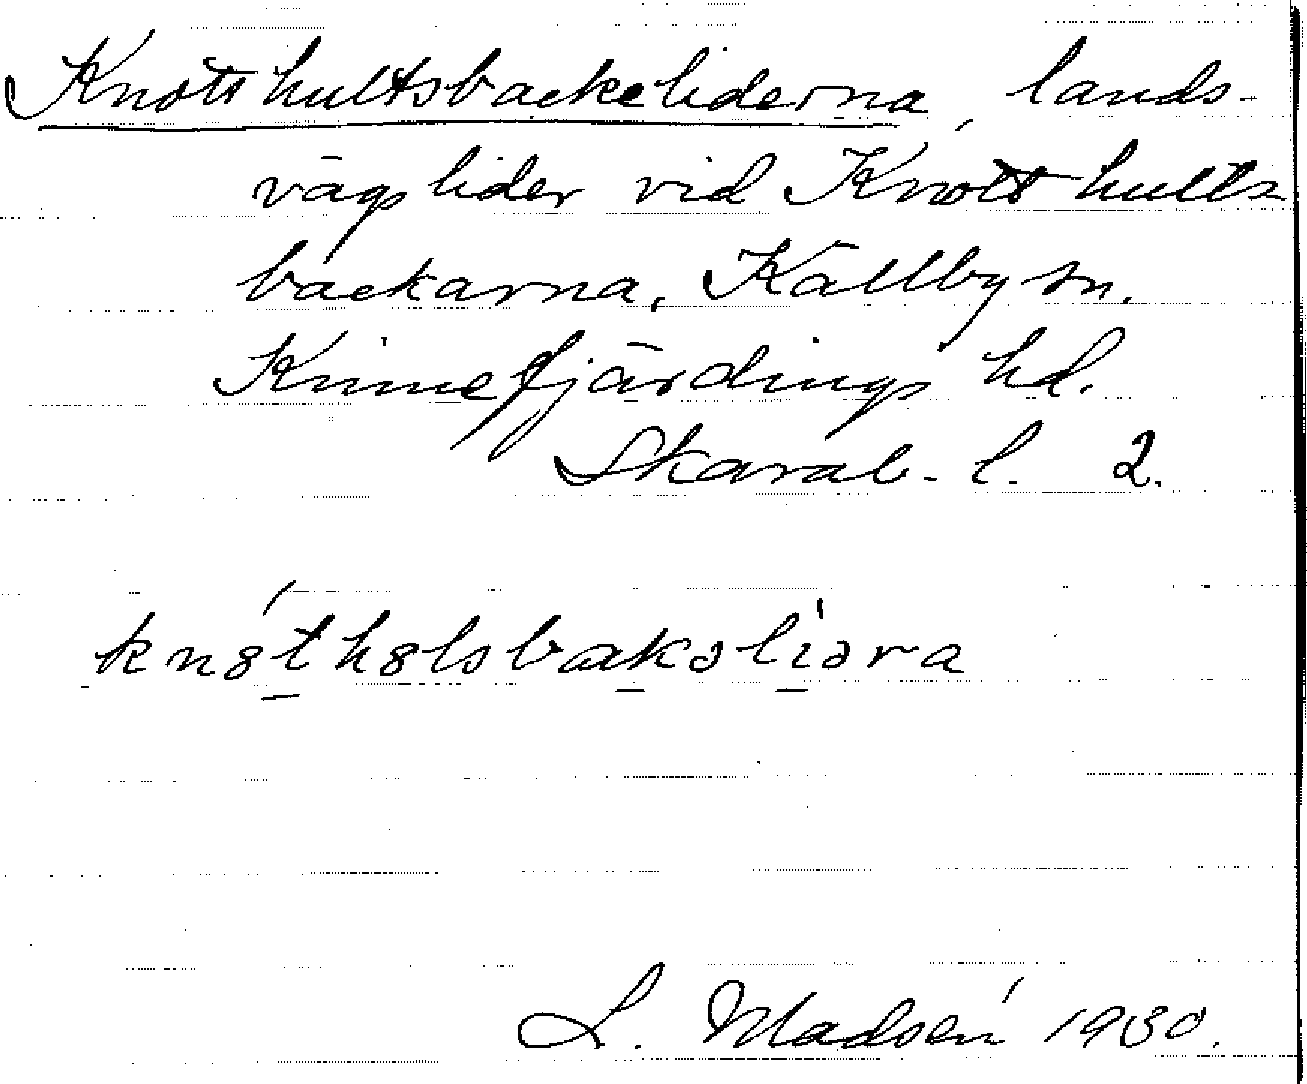 Knotthultsbackeliderna, lands-
vägslider vid Knotthults
backarna, Källby sn.
Kinnefjärdings hd.
Skarab. l. 2.
knɵ́thɵlsbakəliəra
L. Madsén 1930.